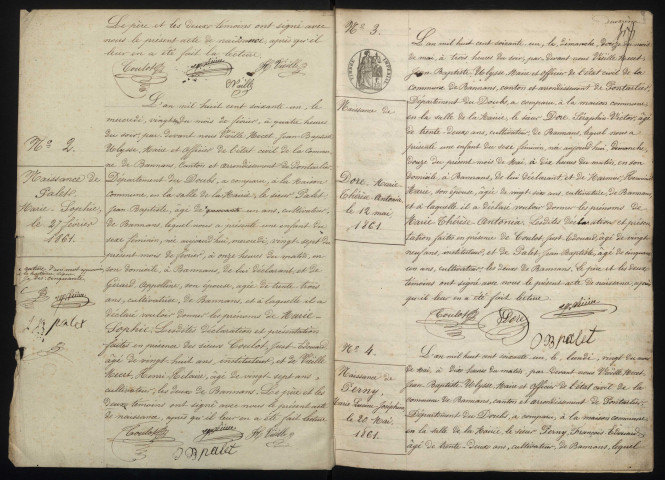 Le père et les deux témoins ont signé avec
nous le présent acte de naissance, après qu'il
leur en a été fait la lecture.
Coulot
Nº 2.
Naissance de
Palet
Marie-Sophie,
le 27 février
1861.
L'an mil huit cent soixante un, le
mercredi, vingt du mois de février, à quatre heures
du soir, par devant nous Vieille Mecet, Jean Baptiste
Ulysse, Maire et officier de l'état civil de la Commu-
ne de Bannans, Canton et arrondissement de Pontarlier
Département du Doubs, a comparu, à la maison
commune en la salle de la Mairie, le sieur Palet
Jean Baptiste, âgé de quarante un ans, cultivateur,
de Bannans, lequel nous a présenté une enfant du
sexe féminin, née aujourd'hui, mercredi vingt sept du
présent mois de février, à onze heures du matin, en
son domicile, à Bannans, de lui déclarant et de
Girard Appolline, son épouse, âgée de trente trois
ans, cultivatrice, de Bannans, et à laquelle il a
déclaré vouloir donner les prénoms de Marie-
Sophie. Lesdites déclaration et présentation
faites en présence des sieurs Coulot, Just Edouard,
âgé de vingt huit ans, instituteur, et de Vieille
Mecet, Henri Hilaire, âgé de vingt sept ans,
cultivateur, les deux de Bannans. Le père et les
deux témoins ont signé avec nous le présent acte
de naissance, après qu'il leur en a été fait lecture
Coulot
JB palet
Nº 3.
Naissance de
Dore, Marie
Thérèse-Antonia
le 12 mai
1861.
L'an mil huit cent soixante un, le dimanche, douze du mois
de mai, à trois heures du soir, par devant nous Vieille Mecet,
Jean Baptiste, Ulysse, Maire et officier de l'état civil de la
commune de Bannans, canton et arrondissement de Pontarlier,
Département du Doubs, a comparu, à la maison commune
en la salle de la Mairie, le sieur Dore, Séraphin Victor, âgé
de trente deux ans, cultivateur, de Bannans, lequel nous a
présenté une enfant du sexe féminin, née aujourd'hui, dimanche
douze du présent mois de Mai, à dix heures du matin, en son
domicile, à Bannans, de lui déclarant et de
Marie, son épouse, âgée de vingt six ans, cultivatrice, de Bannans
et à laquelle il a déclaré vouloir donner les prénoms de
Marie Thérèse-Antonia. Lesdites déclaration et présen-
tation faites en présence de Coulot, Just-Edouard, âgé de vingt
huit ans, instituteur, et de Palet, Jean Baptiste, âgé de quarante
un ans, cultivateur, les deux de Bannans. Le père et les deux
témoins ont signé avec nous le présent acte de naissance, après
qu'il leur en a été fait lecture.
Coulot
Dore
JB palet
Nº 4.
Naissance de
Perny,
le 20 Mai
1861.
L'an mil huit cent soixante un, le lundi, vingt du mois
de Mai, à dix heures du matin, par devant nous Vieille Mecet,
Jean Baptiste, Ulysse, Maire et Officier de l'état civil de la
commune de Bannans, canton et arrondissement de Pontarlier
Département du Doubs, a comparu, à la maison commune
en la salle de la Mairie, le sieur Perny, François Edouard,
âgé de trente-deux ans, cultivateur, de Bannans, lequel